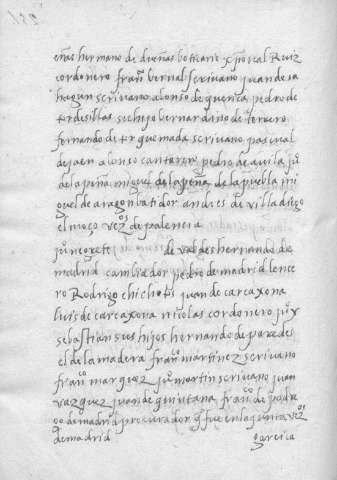 eñas hermano de dueñas boticario xp̄oval Ruiz
cordonero fran^co bernal scrivano juan de sa
hagun scrivano alonso de cuenca pedro de
tordesillas su hijo bernardino de
fernando de torquemada scrivano pascual
de jaen alonso cantarero pedro de avila ju^o
de la peña miguel de la peña de la puebla mi
guel de aragon batidor andres de villadiego
el moço vez^os de palencia
ju^o de valdes hernando de
madrid cambiador pedro de madrid lence
ro Rodrigo juan de carcaxona
luis de carcaxona nicolas cordonero ju^o y
sebastian sus hijos hernando de paredes
el de la madera fran^co martinez scrivano
fran^co marquez ju^o martin scrivano juan
vazquez juan de quintana fran^co de pedro
de madrid procurador q̄ fue en la junta vez^o
de madrid
garcia